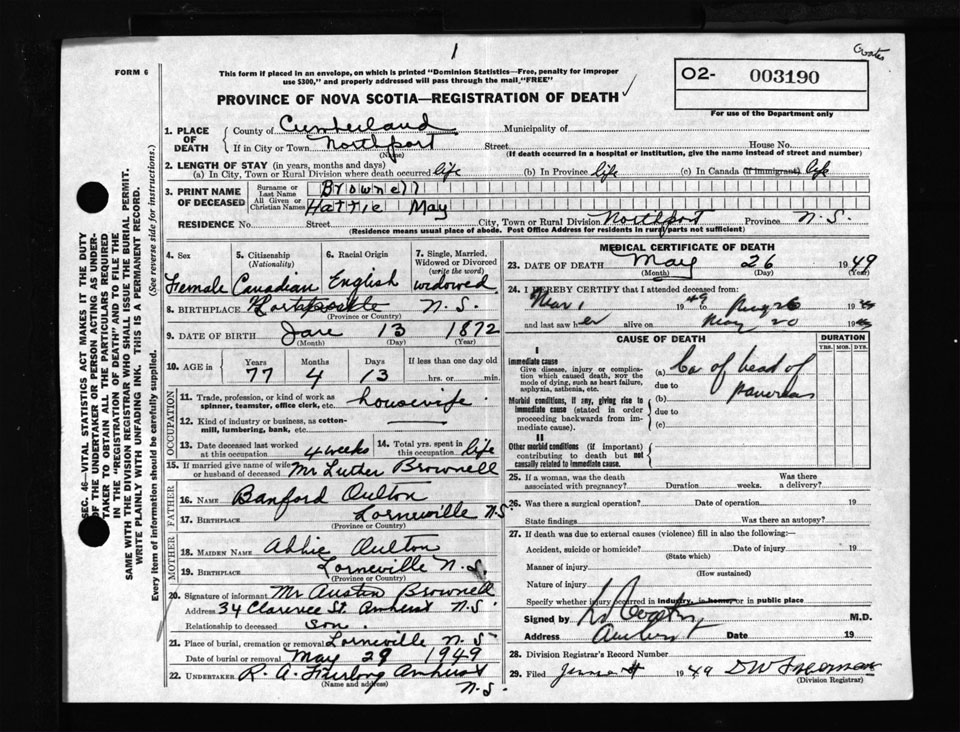 1
Coates
FORM 6
This form if placed in an envelope, on which is printed "Dominion Statistics—Free, penalty for improper
use $300," and properly addressed will pass through the mail "FREE"
O2- 003190
For use of the Department only
PROVINCE OF NOVA SCOTIA—REGISTRATION OF DEATH
SEC. 46—VITAL STATISTICS ACT MAKES IT THE DUTY
OF THE UNDERTAKER OR PERSON ACTING AS UNDER-
TAKER TO OBTAIN ALL THE PARTICULARS REQUIRED
IN THE "REGISTRATION OF DEATH" AND TO FILE THE
SAME WITH THE DIVISION REGISTRAR WHO SHALL ISSUE THE BURIAL PERMIT.
WRITE PLAINLY WITH UNFADING INK. THIS IS A PERMANENT RECORD.
Every item of information should be carefully supplied. (See reverse side for instructions.)
1. PLACE OF DEATH County of Cumberland Municipality of
If in City or Town Northport Street House No.
(Name) (If death occurred in a hospital or institution, give the name instead of street and number)
2. LENGTH OF STAY (in years, months and days)
(a) In City, Town or Rural Division where death occurred life (b) In Province life (c) In Canada (if immigrant) life
3. PRINT NAME OF DECEASED Surname or Last Name Brownell
All Given or Christian Names Hattie May
RESIDENCE No. Street City, Town or Rural Division Northport Province N.S.
(Residence means usual place of abode. Post Office Address for residents in rural parts not sufficient)
4. Sex 5. Citizenship (Nationality) 6. Racial Origin 7. Single, Married, Widowed or Divorced (write the word)
Female Canadian English widowed
8. BIRTHPLACE N.S.
(Province or Country)
9. DATE OF BIRTH Jane 13 1872
(Month) (Day) (Year)
10. AGE in Years Months Days If less than one day old
77 4 13 hrs. or min.
OCCUPATION
11. Trade, profession, or kind of work as
spinner, teamster, office clerk, etc. housewife
12. Kind of industry or business, as cotton-
mill, lumbering, bank, etc.
13. Date deceased last worked at this occupation 4 weeks 14. Total yrs. spent in this occupation life
15. If married give name of wife or husband of deceased Mr Luther Brownell
FATHER
16. NAME Banford Oulton
17. BIRTHPLACE Lorneville N.S.
(Province or Country)
MOTHER
18. MAIDEN NAME Abbie Oulton
19. BIRTHPLACE Lorneville N.S.
(Province or Country)
20. Signature of informant Mr Austin Brownell
Address 34 Clarence St. Amherst N.S.
Relationship to deceased son.
21. Place of burial, cremation or removal Lorneville N.S
Date of burial or removal May 29 1949
22. UNDERTAKER R. A. Furlong Amherst
(Name and address) N.S.
MEDICAL CERTIFICATE OF DEATH
23. DATE OF DEATH May 26 1949
(Month) (Day) (Year)
24. I HEREBY CERTIFY that I attended deceased from:
Mar 1 1949 to May 26 1949
and last saw her alive on May 20 1949
CAUSE OF DEATH DURATION
YRS. MOS. DYS.
I
Immediate cause
Give disease, injury or complica-
tion which caused death, NOT the
mode of dying, such as heart failure,
asphyxia, asthenia, etc.
(a) Ca of head of
due to pancreas
Morbid conditions, if any, giving rise to
immediate cause (stated in order
proceeding backwards from im-
mediate cause).
(b)
due to
(c)
II
Other morbid conditions (if important)
contributing to death but not
causally related to immediate cause.
25. If a woman, was the death
associated with pregnancy? Duration weeks. Was there a delivery?
26. Was there a surgical operation? Date of operation 19
State findings Was there an autopsy?
27. If death was due to external causes (violence) fill in also the following:—
Accident, suicide or homicide? Date of injury 19
(State which)
Manner of injury
(How sustained)
Nature of injury
Specify whether injury occurred in industry, in home, or in public place
Signed by M.D.
Address Amherst Date 19
28. Division Registrar's Record Number
29. Filed June 1949
(Division Registrar)